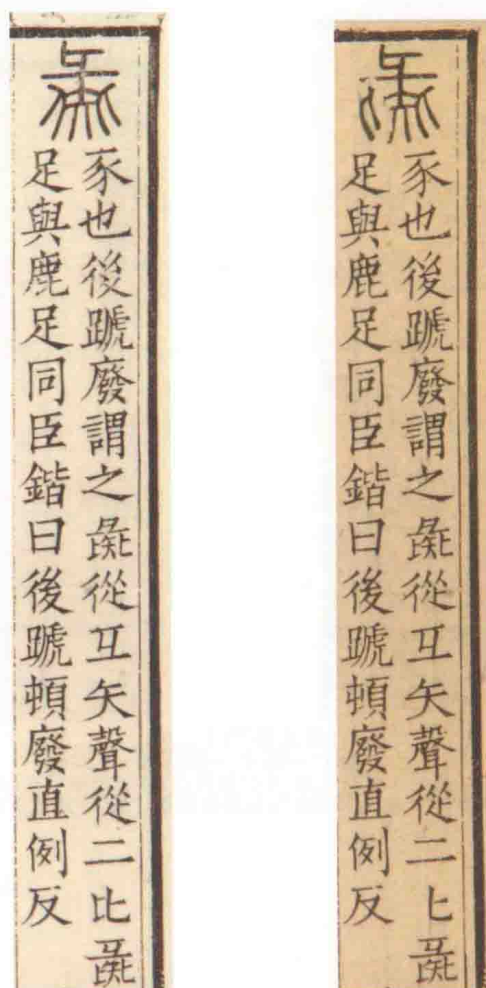 彘
豕也後蹏廢謂之彘從彑矢聲從二比彘
足與鹿足同臣鍇曰後蹏頓廢直例反
彘
豕也後蹏廢謂之彘從彑矢聲從二匕彘
足與鹿足同臣鍇曰後蹏頓廢直例反